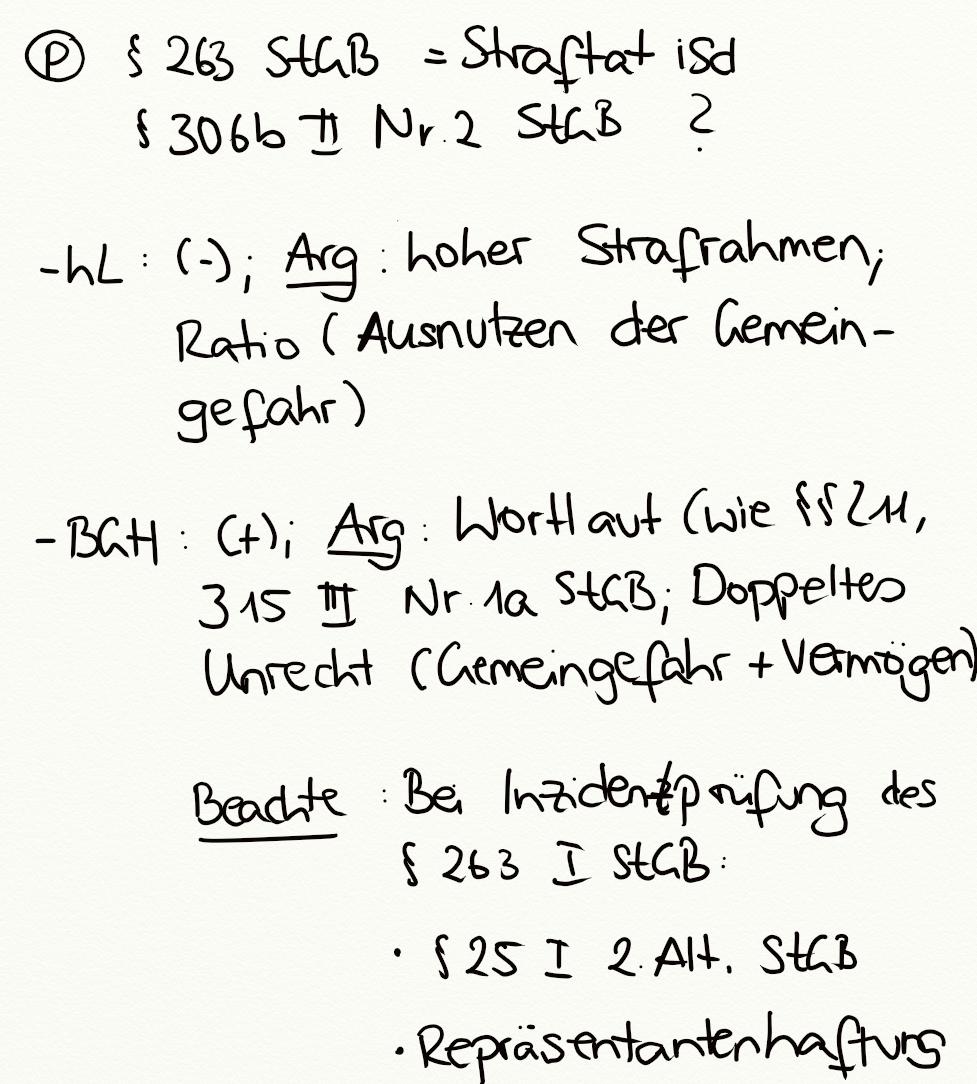 Ⓟ § 263 StGB = Straftat isd
§ 306b II Nr. 2 StGB ?
- hL : (-); Arg : hoher Strafrahmen;
Ratio (Ausnutzen der Gemein-
gefahr)
- BGH : (+); Arg : Wortlaut (wie §§ 211,
315 III Nr. 1a StGB; Doppeltes
Unrecht (Gemeingefahr + Vermögen)
Beachte : Bei Inzidentprüfung des
§ 263 I StGB:
· § 25 I 2. Alt. StGB
· Repräsentantenhaftung